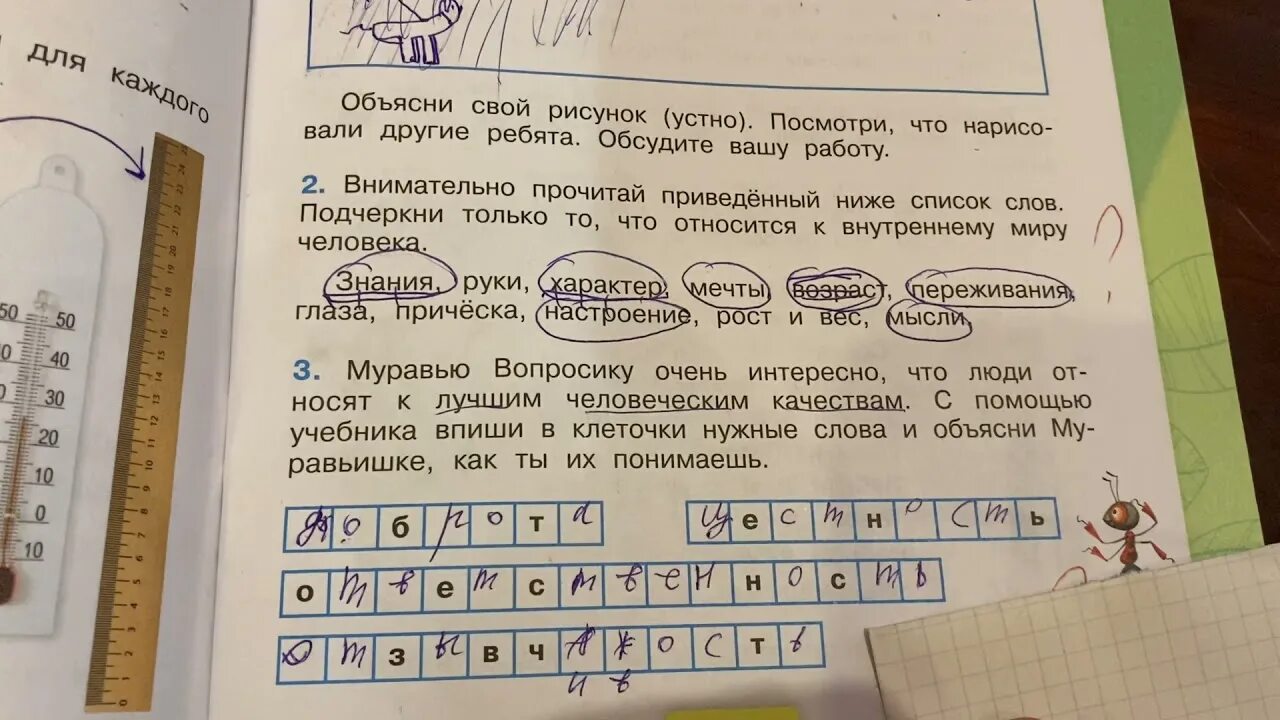 для каждого
Объясни свой рисунок (устно). Посмотри, что нарисо-
вали другие ребята. Обсудите вашу работу.
2. Внимательно прочитай приведённый ниже список слов.
Подчеркни только то, что относится к внутреннему миру
человека.
Знания, руки, характер, мечты, возраст, переживания,
глаза, причёска, настроение, рост и вес, мысли.
3. Муравью Вопросику очень интересно, что люди от-
носят к лучшим человеческим качествам. С помощью
учебника впиши в клеточки нужные слова и объясни Му-
равьишке, как ты их понимаешь.
доброта щестность
ответственность
отзывчакость
и в
50 50
40
30
20
10
0
10